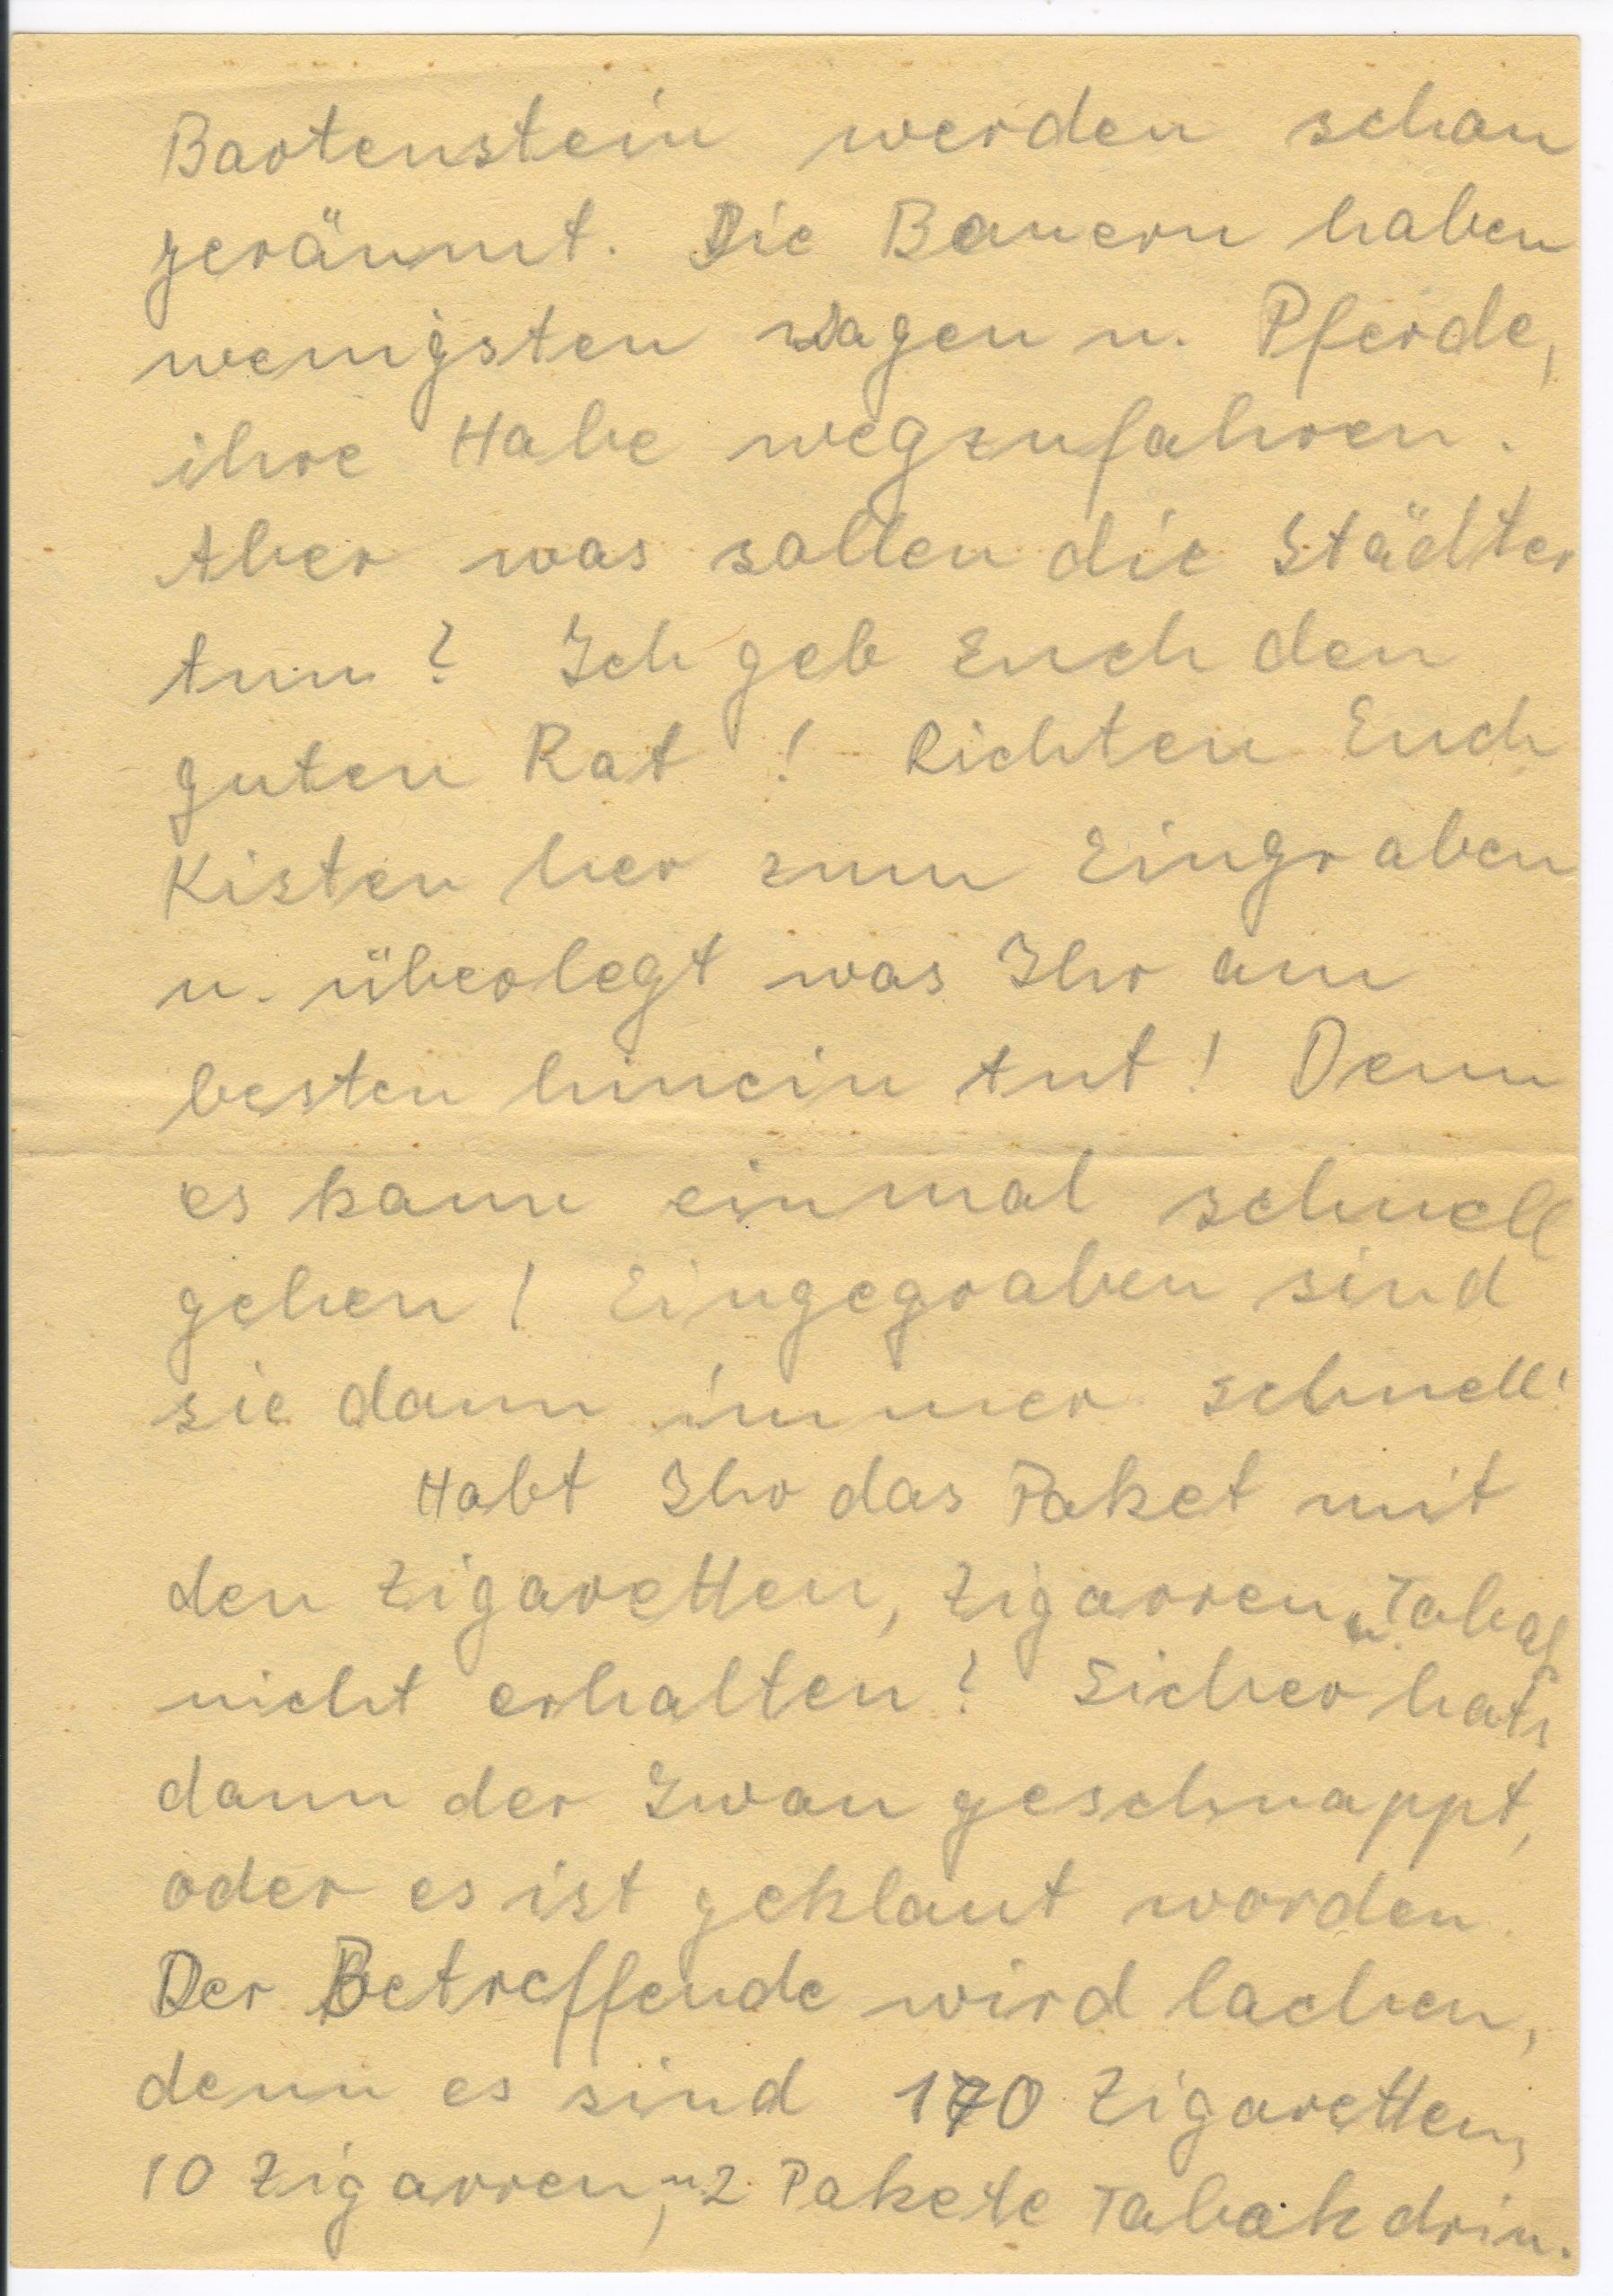 Bartenstein werden schon
geräumt. Die Bauern haben
wenigsten Wagen u. Pferde,
ihre Habe wegzufahren.
Aber was sollen die Städter
tun? Ich geb Euch den
guten Rat! Richten Euch
Kisten her zum Eingraben
u. überlegt was Ihr am
besten hinein tut! Denn
es kann einmal schnell
gehen! Eingegraben sind
sie dann immer schnell!
Habt Ihr das Paket mit
den Zigaretten, Zigarren u. Tabak
nicht erhalten? Sicher hats
dann der Iwan geschnappt,
oder es ist geklaut worden.
Der Betreffende wird lachen,
denn es sind 170 Zigaretten,
10 Zigarren, u. 2 Pakete Tabak drin.